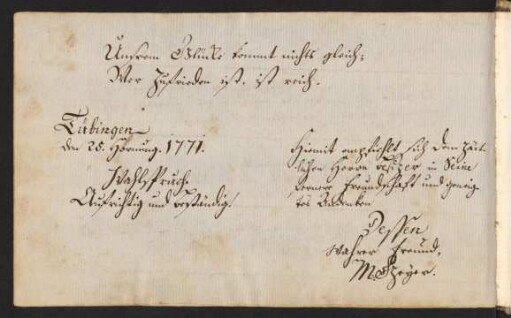 Unserm Glücke kommt nichts gleich;
Wer zufrieden ist, ist reich.
Tübingen
den 25. Hornung. 1771.
Wahlspruch.
Aufrichtig und beständig.
Hiemit empfiehlt sich dem
Herrn Besizer in Seine
Freundschaft und geneig-
tes Andenken
Dessen
wahrer Freund,